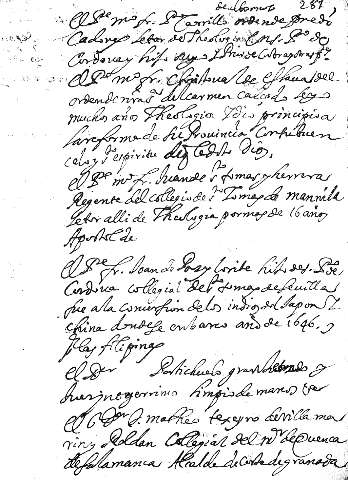 287
el Pe mo fr. Po Carrillo orden de predi
Cadores letor de Theologia en S. Po de
Cordova y hijo
el Pe mo fr. Christoval de del
orden de nra sa del carmen calçado leyo
muchos años Theologia y dio principio a
la reforma de su Provincia con su buen
celo y so espiritu dig Dios.
el Pe mo fr. Juan de so tomas y herrera
Regente del collegio de so tomas de mannila
letor alli de Theologia por mas de 16 años
Apostol de
el Pe fr. Joan de los y lorite hijo de S. Po de
Cordova collegial del so tomas de sevilla
fue a la conversion de los indios del Japon y
china donde se embarco año de 1646. y
Islas filipinas
el Dor Portichuelo gran letrado y
buen limpio de manos
el Dor D. matheo texeyro sevilla ma
rin y Roldan Collegial del mr de cuenca
de salamanca Alcalde de Corte de granada